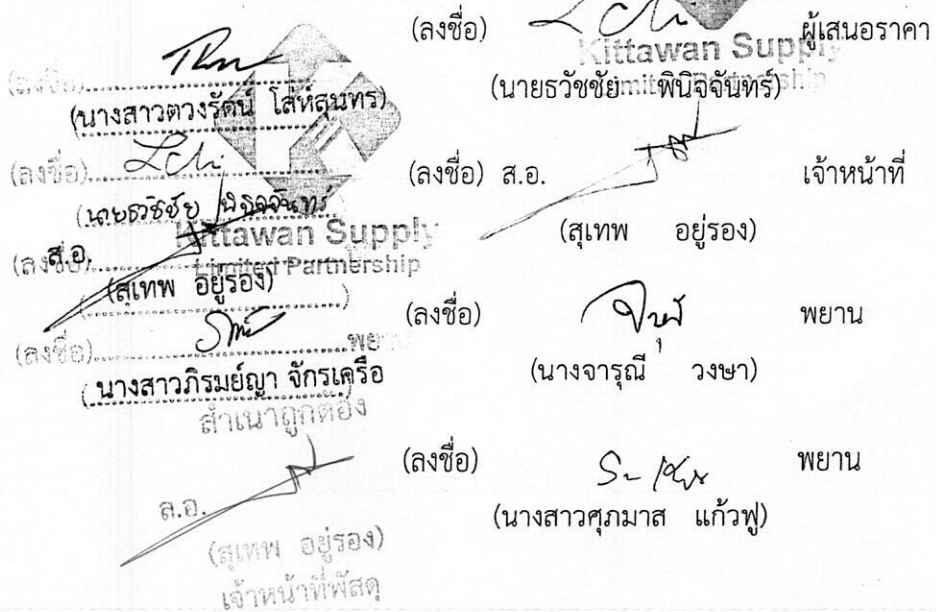 (ลงชื่อ) ผู้เสนอราคา
Kittawan Supply
Limited Partnership
(นายธวัชชัย พินิจจันทร์)
(ลงชื่อ) ส.อ. เจ้าหน้าที่
(สุเทพ อยู่รอง)
(ลงชื่อ) พยาน
(นางจารุณี วงษา)
(ลงชื่อ) พยาน
(นางสาวศุภมาส แก้วฟู)
(ลงชื่อ)
(นางสาวตวงรัตน์ โส่ห์สุนทร)
(ลงชื่อ)
(นายธวัชชัย พินิจจันทร์)
Kittawan Supply
Limited Partnership
(ลงชื่อ) ส.อ.
(สุเทพ อยู่รอง)
(ลงชื่อ) พยาน
(นางสาวภิรมย์ญา จักรเครือ)
สำเนาถูกต้อง
ส.อ.
(สุเทพ อยู่รอง)
เจ้าหน้าที่พัสดุ